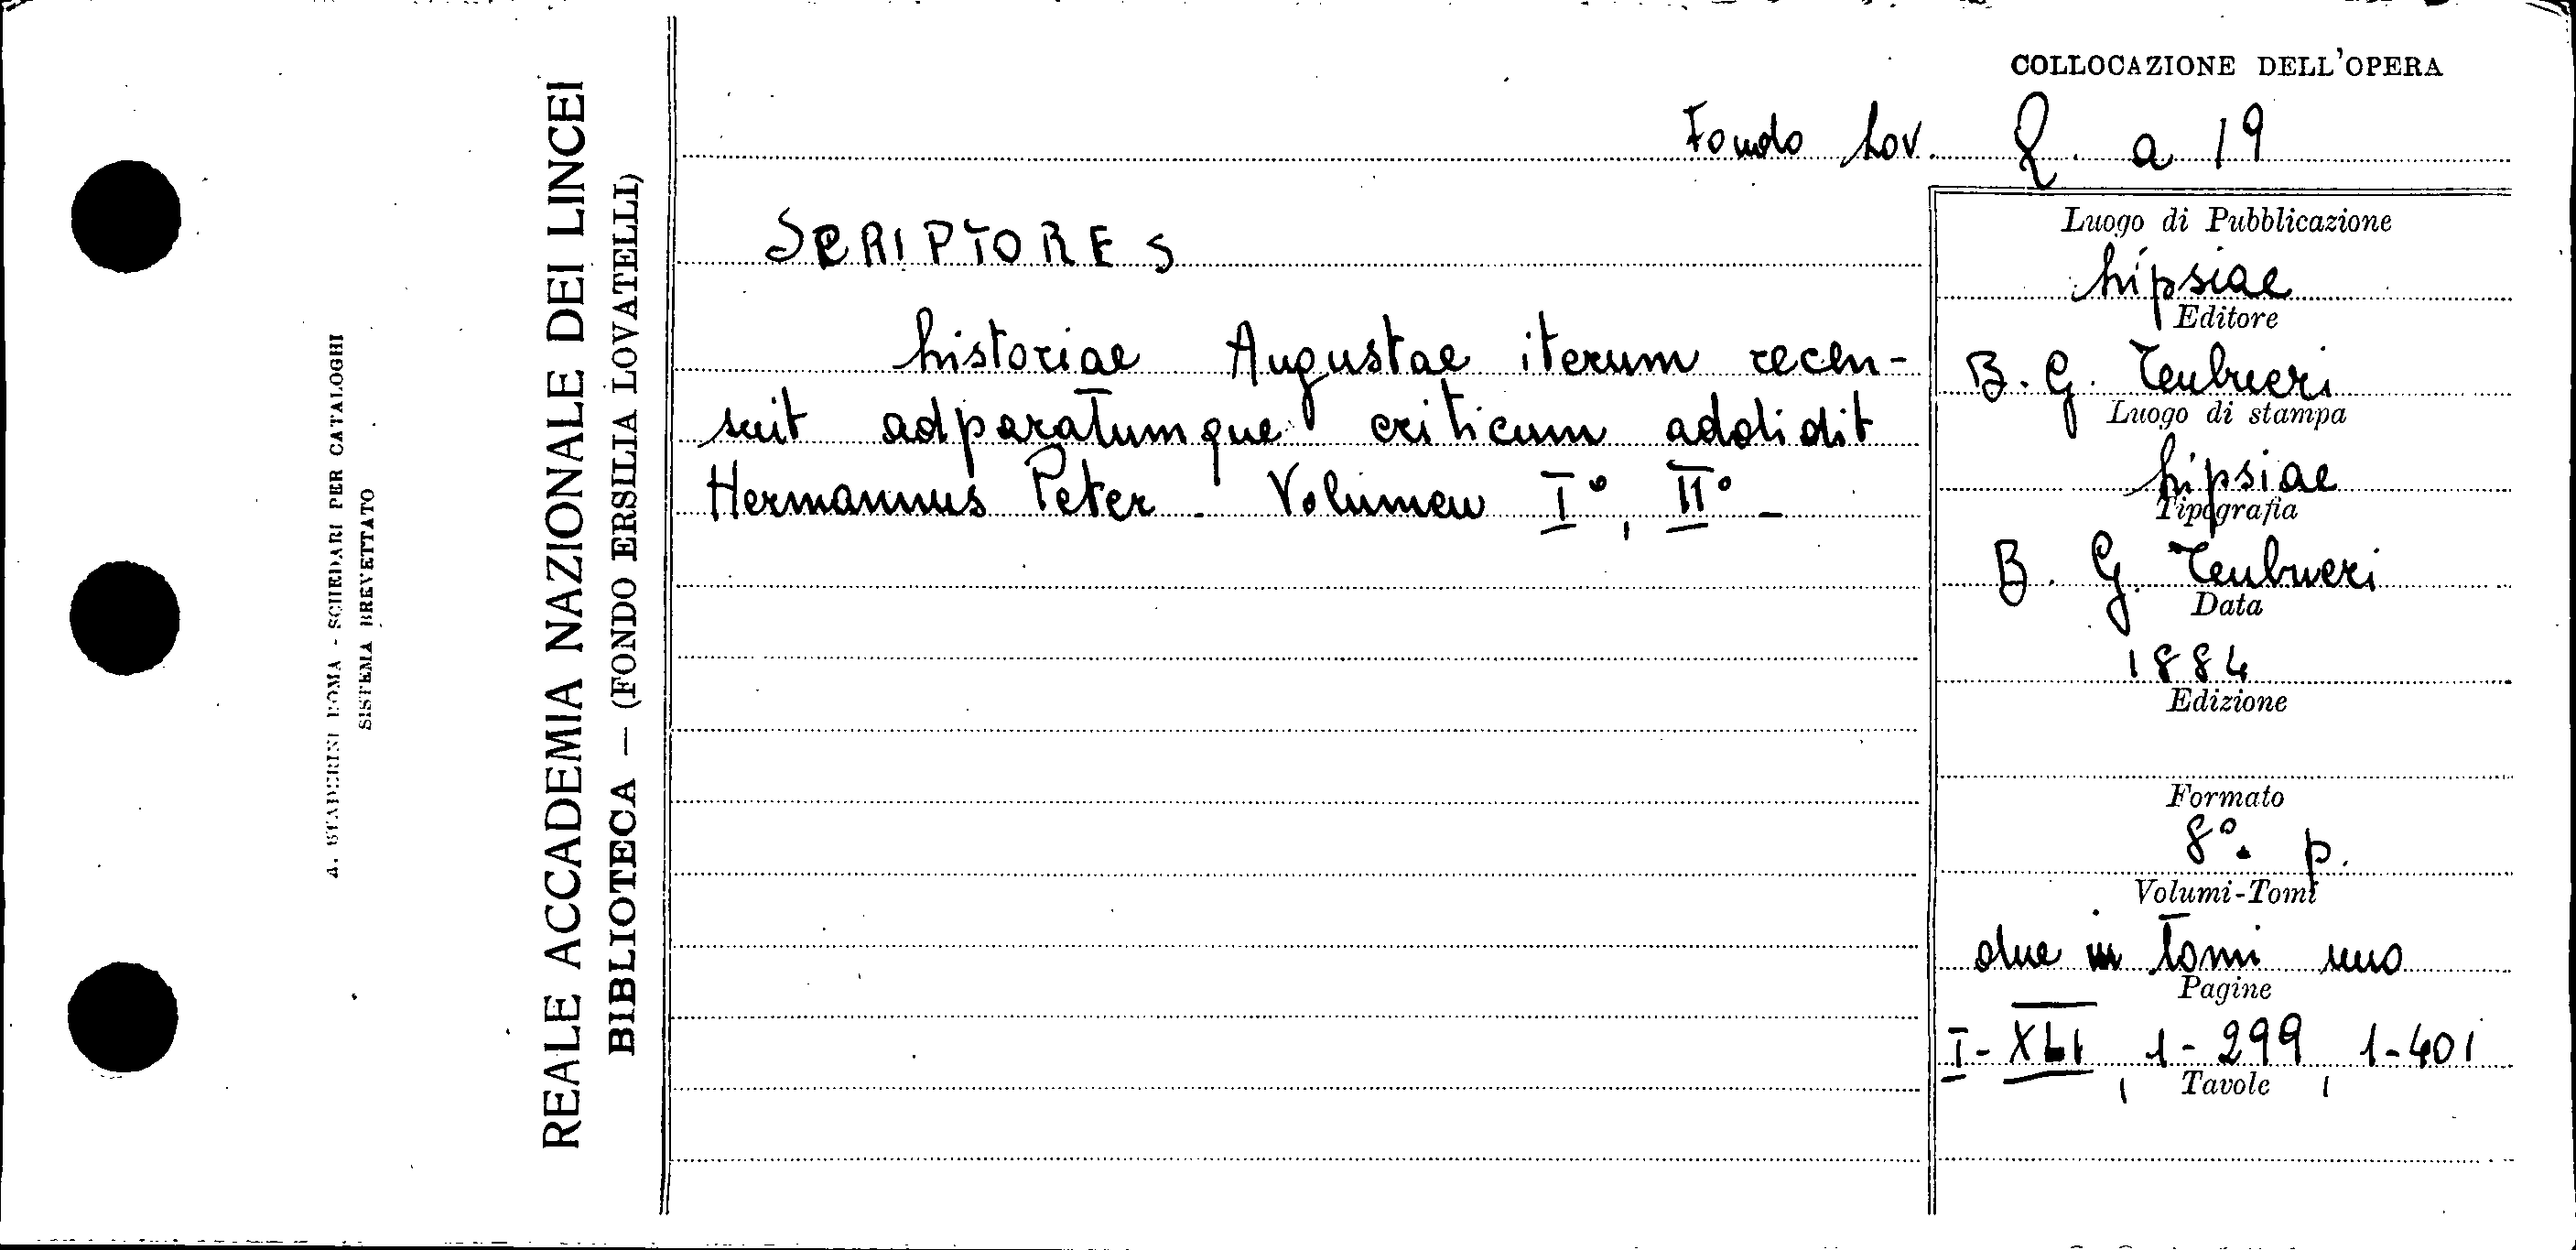 A. STADERINI ROMA - SCHEDARI PER CATALOGHI
SISTEMA BREVETTATO
REALE ACCADEMIA NAZIONALE DEI LINCEI
BIBLIOTECA — (FONDO ERSILIA LOVATELLI)
COLLOCAZIONE DELL'OPERA
Fondo Lov. Q. a 19
SCRIPTORES
historiae Augustae iterum recen-
suit adparatumque criticum addidit
Hermannus Peter - Volumen I°, II° -
Luogo di Pubblicazione
Lipsiae
Editore
B. G. Teubneri
Luogo di stampa
Lipsiae
Tipografia
B. G. Teubneri
Data
1884
Edizione
Formato
8°. p.
Volumi-Tomi
due in Tomi uno
Pagine
I-XLI, 1-299, 1-401
Tavole